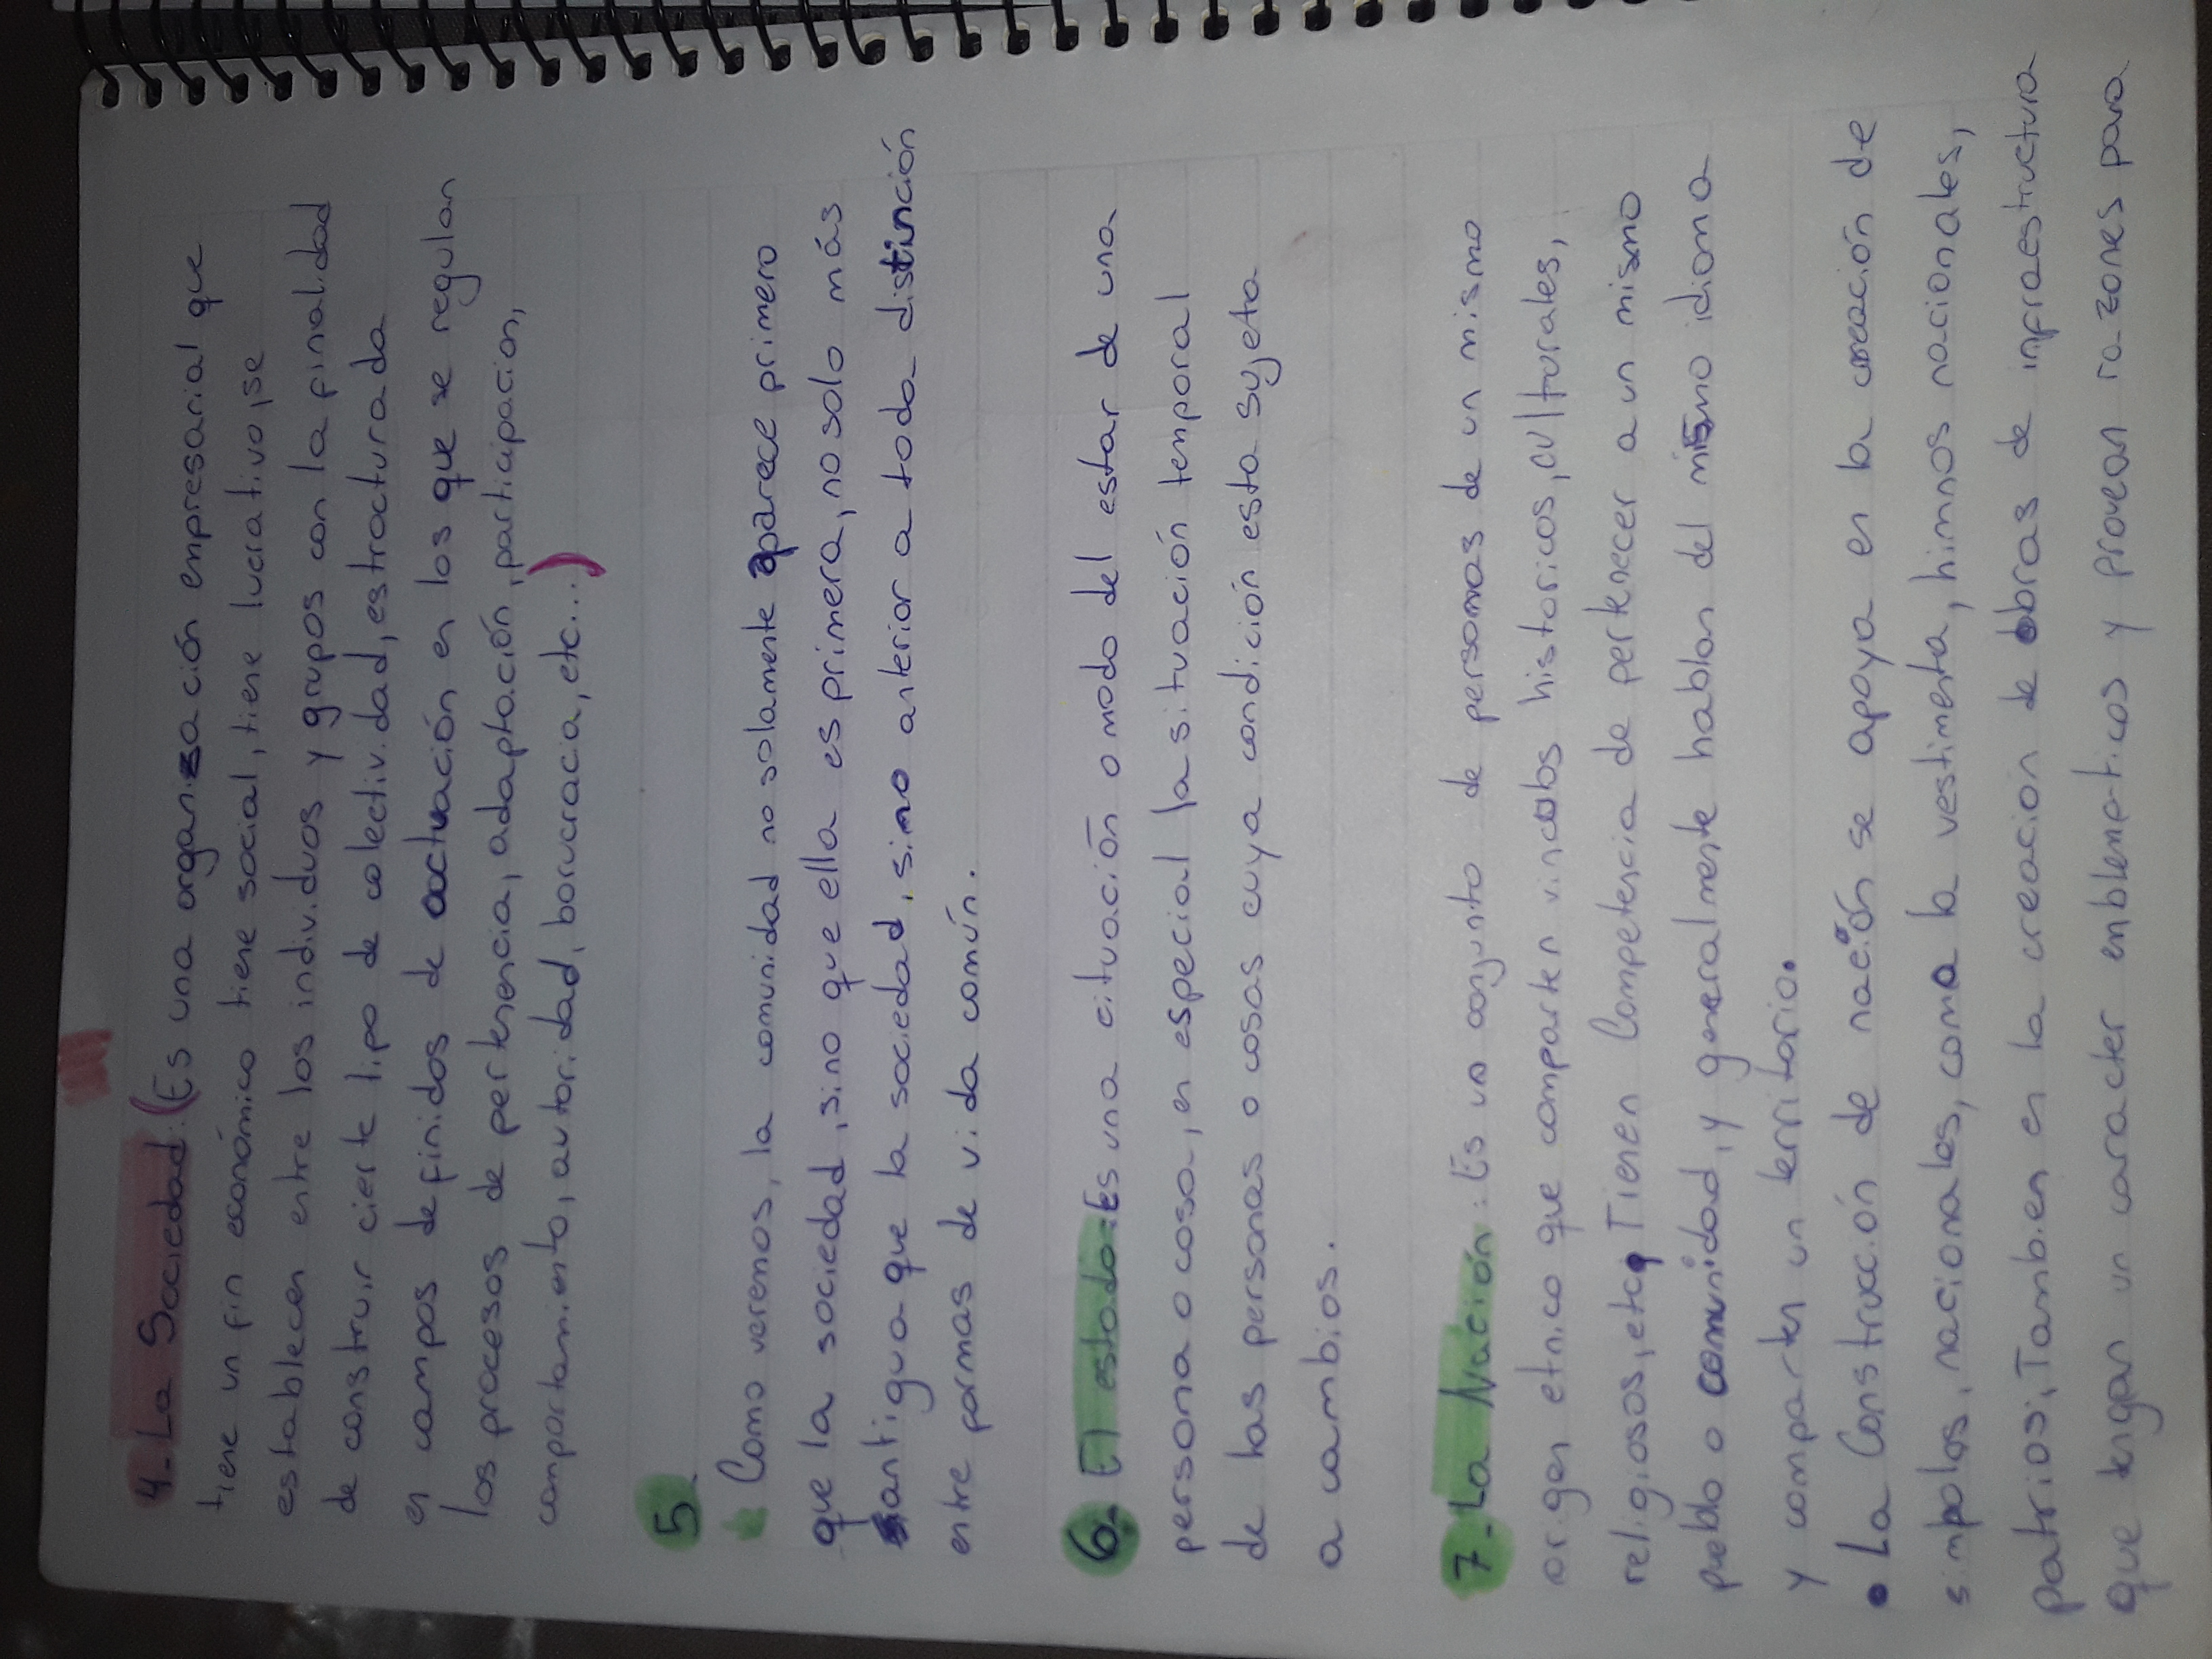 4-La Sociedad: (Es una organización empresarial que
tiene un fin económico tiene social, tiene lucrativo, se
establecen entre los individuos y grupos con la finalidad
de construir cierte tipo de colectividad, estructurada
en campos definidos de actuación en los que se regulan
los procesos de pertenencia, adaptación, participacion,
comportamiento, autoridad, borucracia, etc...)
5-
Como veremos, la comunidad no solamente aparece primero
que la sociedad, sino que ella es primera, no solo más
antigua que la sociedad, sino anterior a toda distinción
entre formas de vida común.
6- El estado: Es una cituación o modo del estar de una
persona o cosa, en especial la situación temporal
de las personas o cosas cuya condición esta sujeta
a cambios.
7-La Nación: Es un conjunto de personas de un mismo
origen etnico que comparten vinculos historicos, culturales,
religiosos, etc, Tienen Competencia de pertenecer a un mismo
pueblo o comunidad, y generalmente hablan del mismo idioma
y comparten un territorio.
• La Construcción de nación se apoya en la creación de
simpolos, nacionales, como la vestimenta, himnos nacionales,
patrios, Tambien en la creación de obras de infraestructura
que tengan un caracter emblematicos y provean razones para